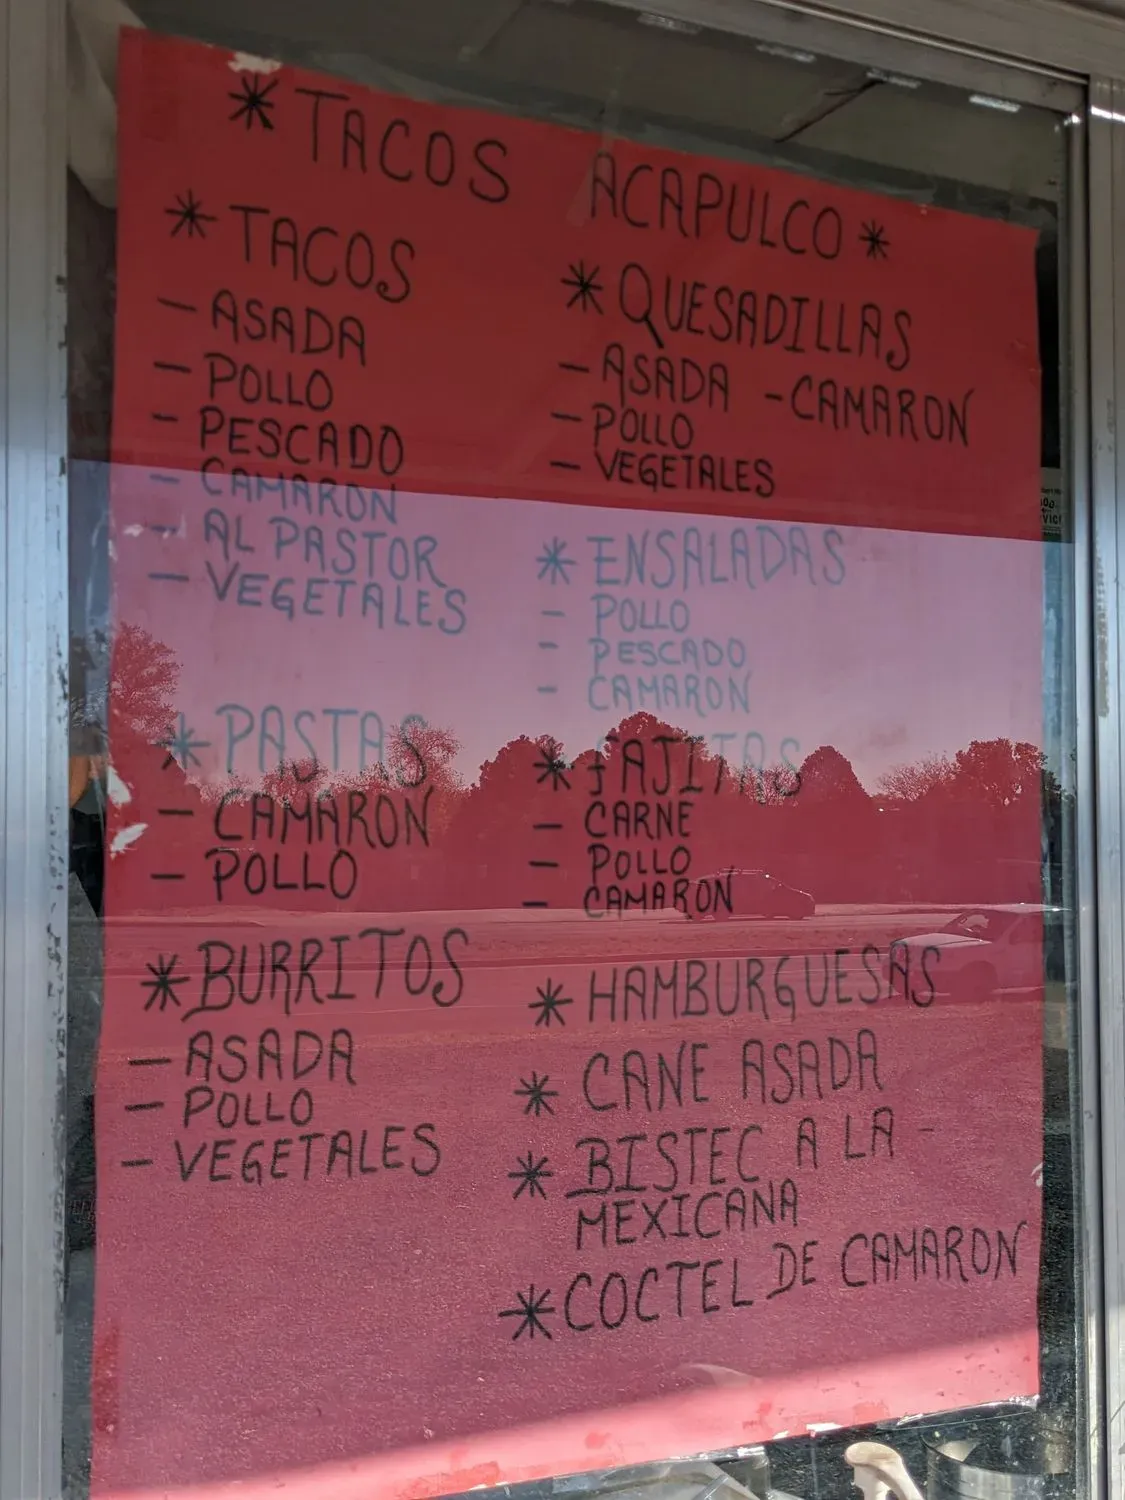 * TACOS ACAPULCO *
* TACOS
- ASADA
- POLLO
- PESCADO
- CAMARON
- AL PASTOR
- VEGETALES
* PASTAS
- CAMARON
- POLLO
* BURRITOS
- ASADA
- POLLO
- VEGETALES
* QUESADILLAS
- ASADA - CAMARON
- POLLO
- VEGETALES
* ENSALADAS
- POLLO
- PESCADO
- CAMARON
* FAJITAS
- CARNE
- POLLO
- CAMARON
* HAMBURGUESAS
* CANE ASADA
* BISTEC A LA -
MEXICANA
* COCTEL DE CAMARON